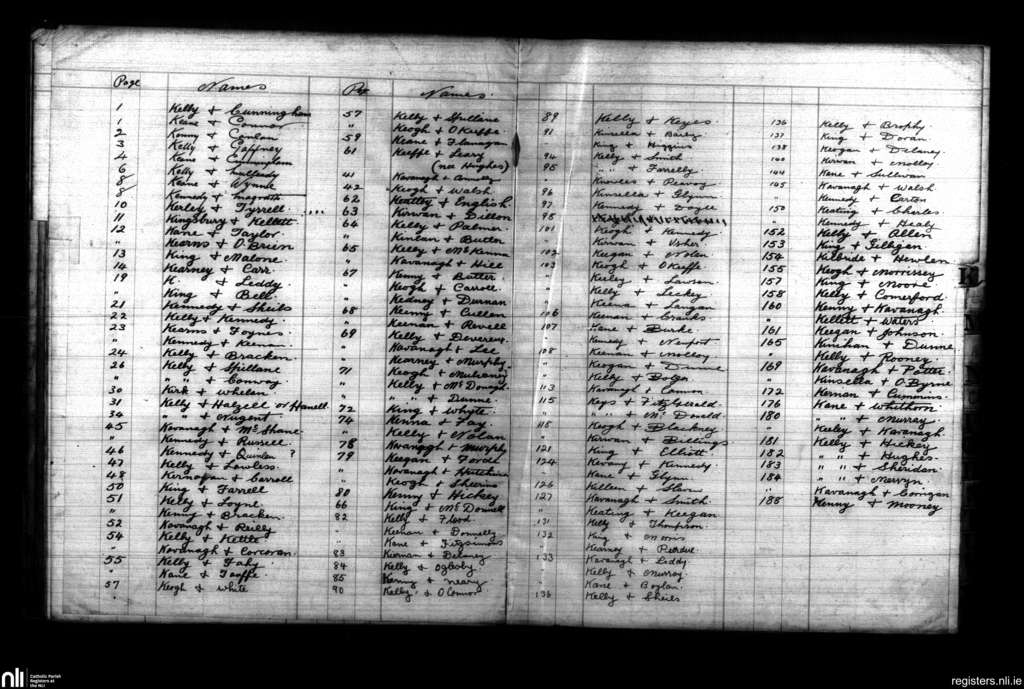 Page Names
1 Kelly + Cunningham
1 Keane + Connor
2 Kenny + Conlon
3 Kelly + Gaffney
4 Keane + Cunningham
6 Kelly +
8 Keane + Wynne
8 Kennedy +
10 Kerley + Tyrrell
11 Kingsbury + Kellett
12 Kane + Taylor
" Kearns + O'Brien
13 King + Malone
14 Kearney + Carr
19 K. + Leddy
" King + Bell
21 Kennedy + Sheils
22 Kelly + Kennedy
23 Kearns + Foynes
" Kennedy + Keenan
24 Kelly + Bracken
26 Kelly + Spillane
" " + Convoy
30 Kirk + Whelan
31 Kelly + Halzell or Hanell
34 " + Nugent
45 Kavanagh + McShane
" Kennedy + Russell
46 Kennedy + Quinlan ?
47 Kelly + Lawless
48 Kernahan + Carroll
50 King + Farrell
51 Kelly + Foyne
" Kenny + Bracken
52 Kavanagh + Reilly
54 Kelly + Kettle
" Kavanagh + Corcoran
55 Kelly + Fahy
" Kane + Taaffe
57 Keogh + White
Names
57 Kelly + Spillane
" Keogh + O'Keeffe
59 Keane + Flanagan
61 Keeffe + Leary
(nee Hughes)
41 Kavanagh + Connolly
42 Keogh + Walsh
62 Keatley + English
63 Kirwan + Dillon
64 Kelly + Palmer
" Kinlan + Butler
65 Kelly + McKenna
" Kavanagh + Hill
67 Kenny + Butler
" Keogh + Carroll
" Kedney + Durnan
68 Kenny + Cullen
" Keenan + Revell
69 Kelly + Devereux
" Kavanagh + Lee
" Kearney + Murphy
71 Keogh + Mulraney
" Kelly + McDonagh
" " + Dunne
72 King + Whyte
74 Kenna + Fay
" Kelly + Nolan
78 Kavanagh + Murphy
79 Keegan + Forde
" Kavanagh + Hutchins
" Keogh + Sheerins
80 Kenny + Hickey
66 King + McDonnell
82 Kelly + Flood
" Keenan + Donnelly
" Kane + Fitzsimons
83 Kiernan + Delaney
84 Kelly + Oglesby
85 Kenny + Neary
90 Kelly + O'Connor
89 Kelly + Keyes
91 Kinsella + Bailey
" King + Higgins
94 Kelly + Smith
95 " " + Farrelly
" Knowles + Peavoy
96 Kinsella + Glynn
97 Kennedy + Doyle
98
101 Keogh + Kennedy
" Kirwan + Usher
102 Keegan + Nolan
103 Keogh + O'Keeffe
" Kerley + Lawson
" Kelly + Leckey
" Keenan + Langan
106 Keenan +
107 Kane + Burke
" Kennedy + Newport
108 Keenan + Molloy
" Keogan + Dunne
" Kelly + Bolger
113 Kavanagh + Cannon
115 Keys + Fitzgerald
" " " + McDonald
118 Keogh + Blackney
" Kirwan + Billings
121 King + Elliott
124 Kevany + Kennedy
" Kane + Glynn
126 Killeen +
127 Kavanagh + Smith
" Keating + Keegan
131 Kelly + Thompson
132 King + Morris
" Kearney + Perdue
133 Kavanagh + Leddy
" Kelly + Murray
" Kane + Boylan
136 Kelly + Sheils
136 Kelly + Brophy
137 King + Doran
138 Keogan + Delaney
140 Kirwan + Molloy
144 Kane + Sullivan
145 Kavanagh + Walsh
" Kennedy + Carton
150 Keating + Charles
" Kennedy + Healy
152 Kelly + Allen
153 King + Gilligan
154 Kilbride + Hewlen
155 Keogh + Morrissey
157 King + Moore
158 Kelly + Comerford
160 Kenny + Kavanagh
" Kellett + Waters
161 Keegan + Johnson
165 Kinihan + Dunne
" Kelly + Rooney
169 Kavanagh + Potter
" Kinsella + O'Byrne
172 Kernan + Cummins
176 Kane + Whithorn
180 " + Murray
" Kerley + Kavanagh
181 Kelly + Hickey
182 " " + Hughes
183 " " + Sheridan
184 " " + Mervyn
" Kavanagh + Corrigan
188 Kenny + Mooney
nli Catholic Parish
Registers at
the NLI
registers.nli.ie